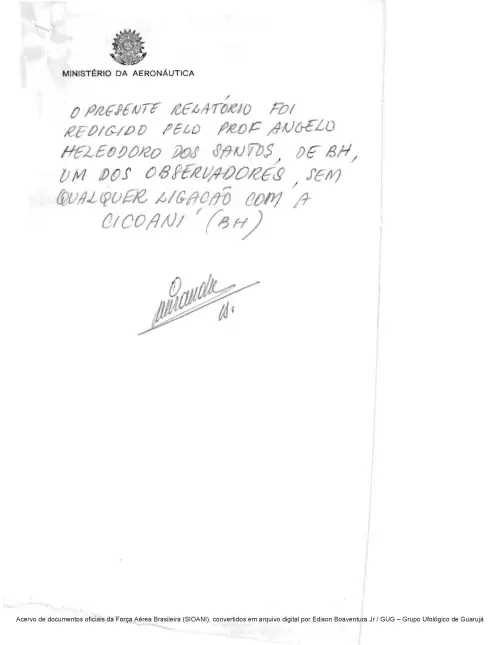 MINISTÉRIO DA AERONÁUTICA
O PRESENTE RELATÓRIO FOI
REDIGIDO PELO PROF ANGELO
HELEODORO DOS SANTOS, DE BH,
UM DOS OBSERVADORES, SEM
QUALQUER LIGAÇÃO COM A
CICOANI (BH)
Acervo de documentos oficiais da Força Aérea Brasileira (SIOANI), convertidos em arquivo digital por Edison Boaventura Jr / GUG – Grupo Ufológico de Guarujá